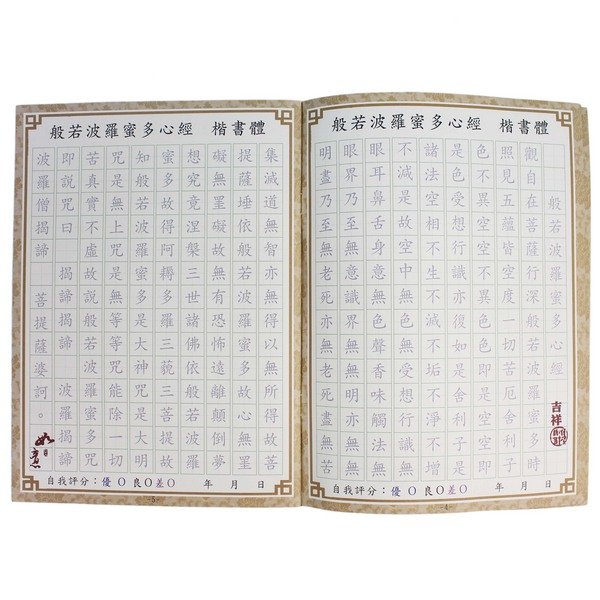 般若波羅蜜多心經 楷書體
般若波羅蜜多心經
觀自在菩薩行深般若波羅蜜多時
照見五蘊皆空度一切苦厄舍利子
色不異空空不異色色即是空空即
是色受想行識亦復如是舍利子是
諸法空相不生不滅不垢不淨不增
不減是故空中無色無受想行識無
眼耳鼻舌身意無色聲香味觸法無
眼界乃至無意識界無無明亦無無
明盡乃至無老死亦無老死盡無苦
吉祥
自我評分：優〇良〇差〇 年 月 日
-4-
般若波羅蜜多心經 楷書體
集滅道無智亦無得以無所得故菩
提薩埵依般若波羅蜜多故心無罣
礙無罣礙故無有恐怖遠離顛倒夢
想究竟涅槃三世諸佛依般若波羅
蜜多故得阿耨多羅三藐三菩提故
知般若波羅蜜多是大神咒是大明
咒是無上咒是無等等咒能除一切
苦真實不虛故說般若波羅蜜多咒
即說咒曰 揭諦揭諦 波羅揭諦
波羅僧揭諦 菩提薩婆訶。
如意
自我評分：優〇良〇差〇 年 月 日
-5-